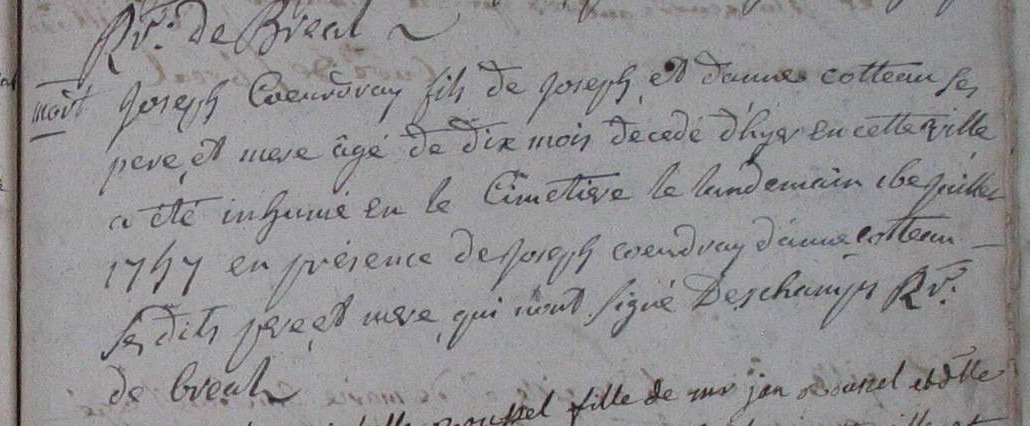 Rr. de Breal
mort Joseph Coeurdray fils de Joseph et danne cotteau ses
pere et mere âgé de dix mois decedé d'hyer en cette ville
a été inhumé en le Cimetiere le landemain 16e juillet
1757 en présence de Joseph coeudray d'anne cotteau
ses dits pere et mere qui n'ont signé Deschamps Rr.
de breal
fille de mr jan roussel et dlle